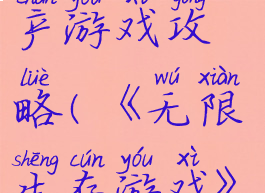 chǎn yóu xì gōng
产游戏攻
lüè wú xiàn
略(《无限
shēng cún yóu xì
生存游戏》